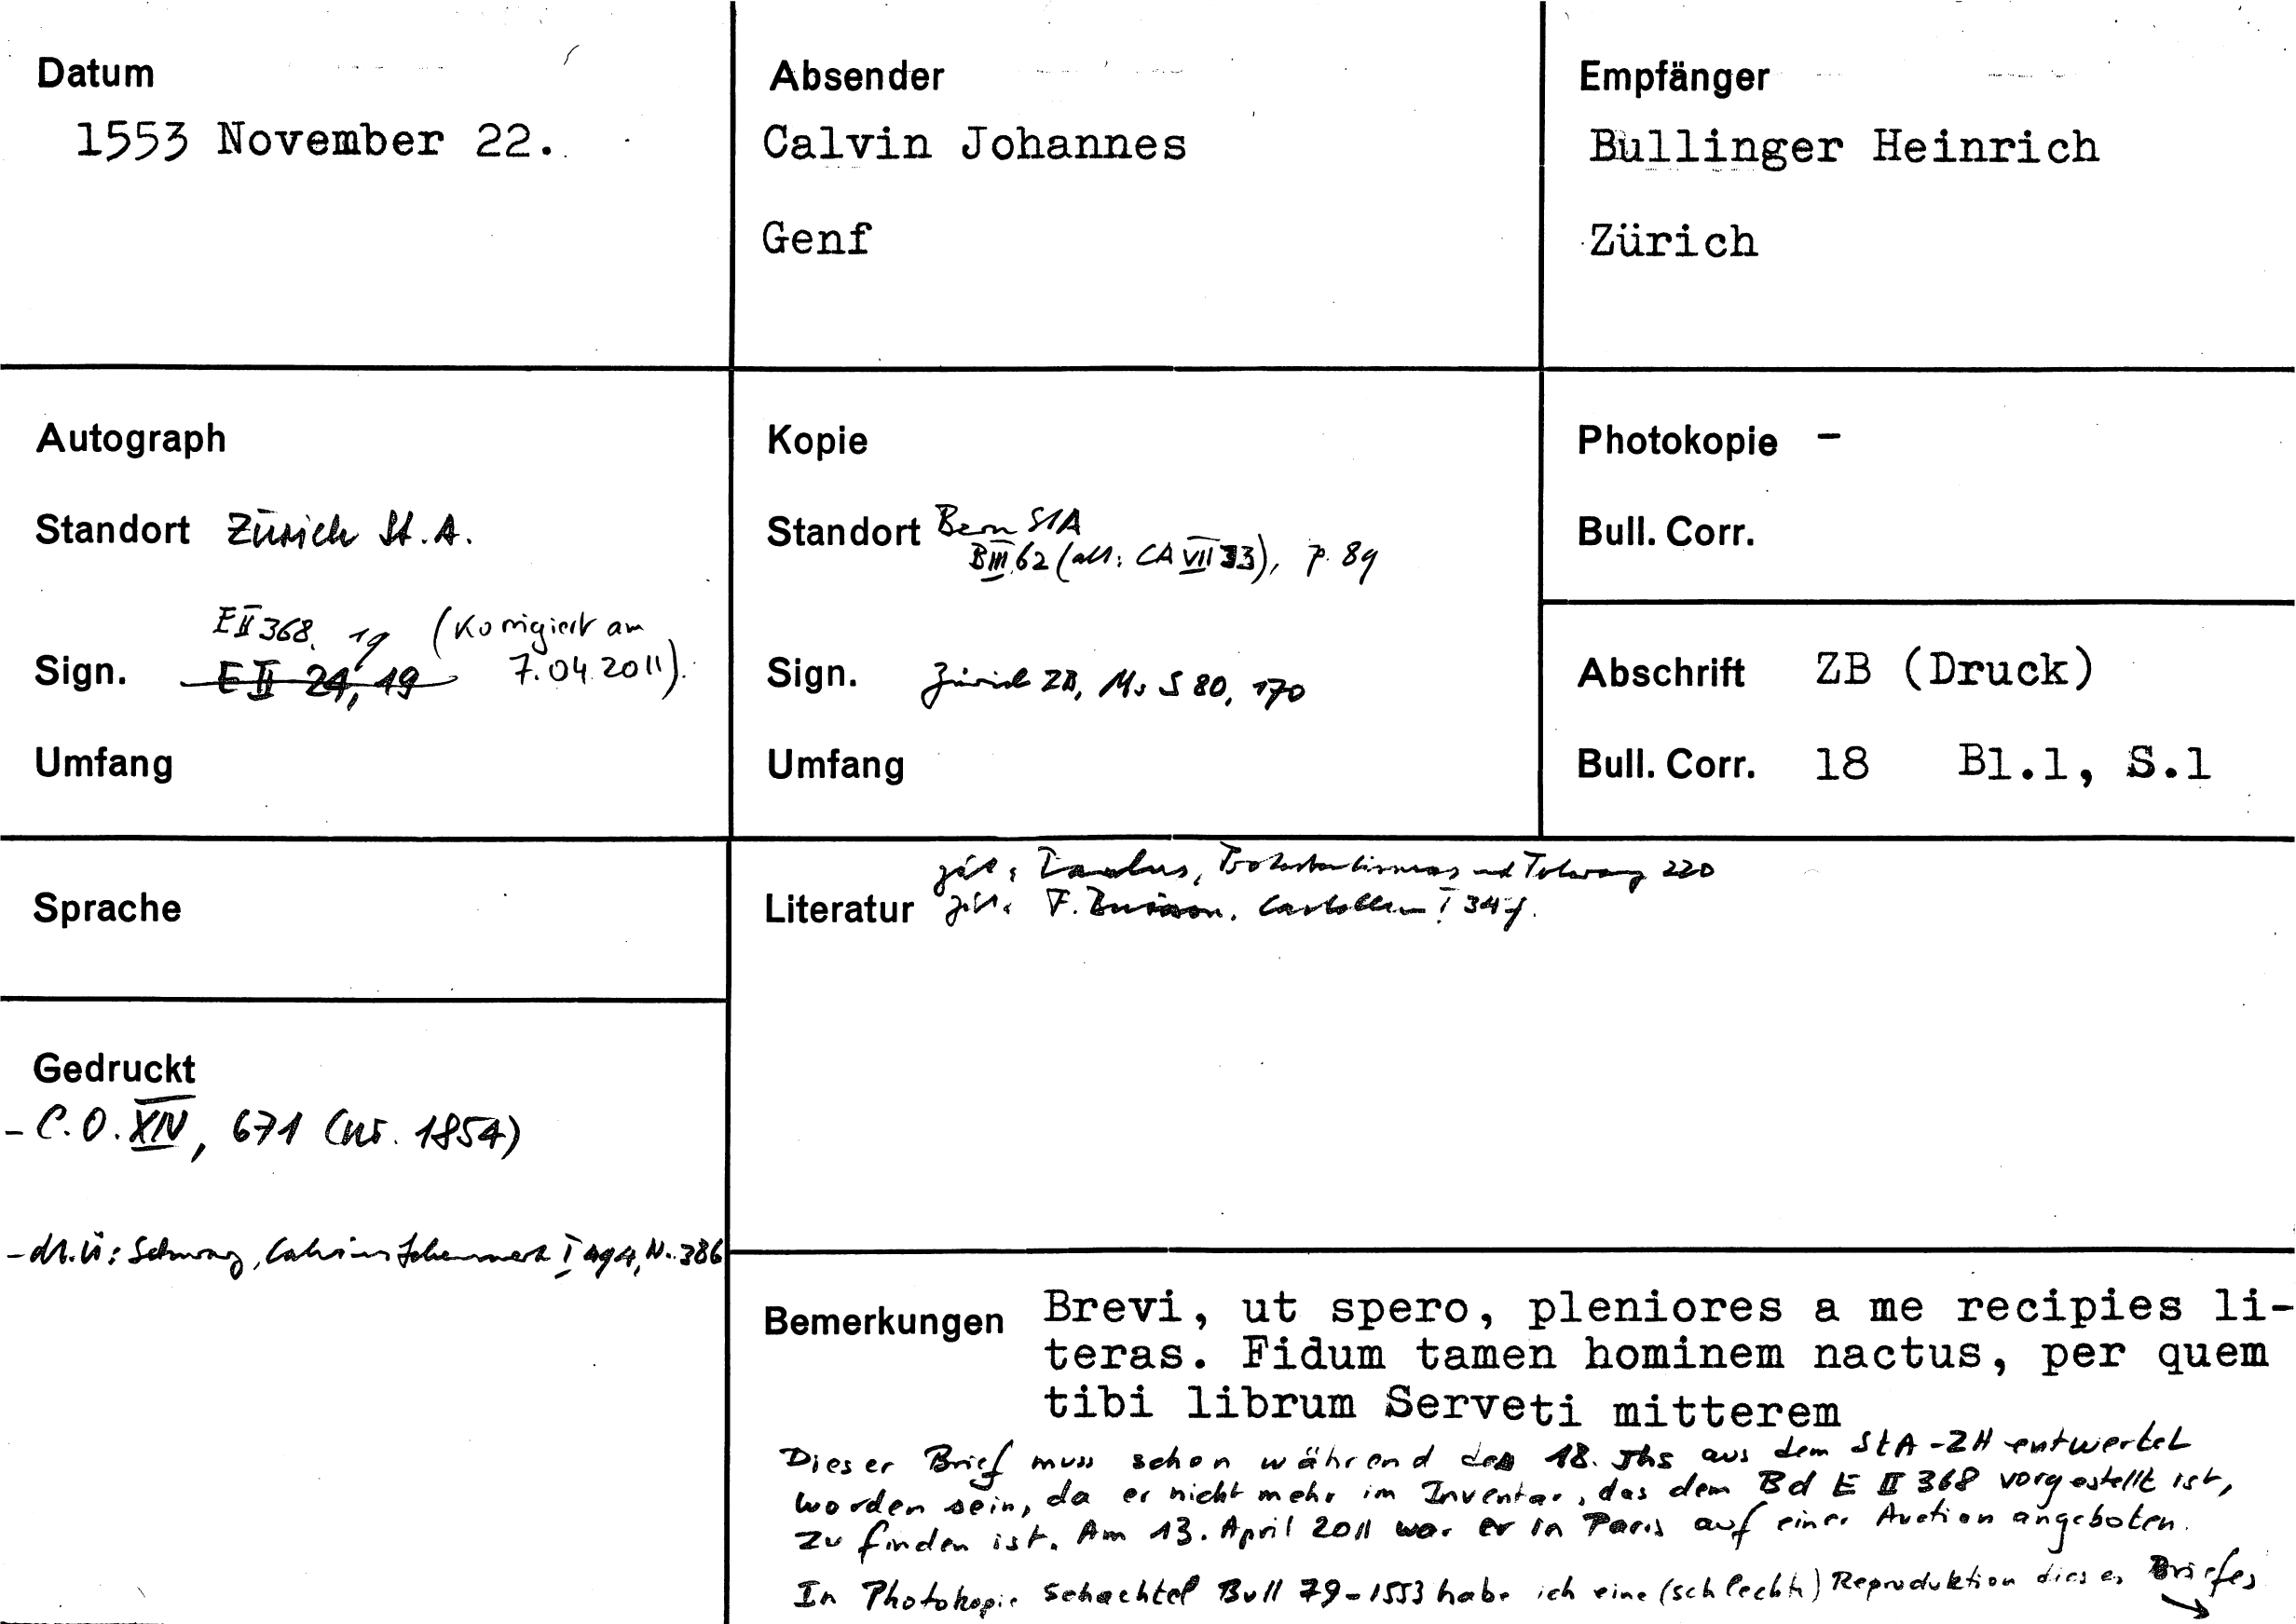 Datum
1553 November 22.
Absender
Calvin Johannes
Genf
Empfänger
Bullinger Heinrich
Zürich
Autograph
Standort Zürich St.A.
E II 368, 19 (Korrigiert am
7.04.2011).
Sign. E II 24, 19
Umfang
Kopie
Standort Bern StA
B III 62 (alt: CA VII 33), p. 89
Sign. Zürich ZB, Ms S 80, 170
Umfang
Photokopie -
Bull. Corr.
Abschrift ZB (Druck)
Bull. Corr. 18 Bl.1, S.1
Sprache
zit: Paulus, Protestantismus und Toleranz 220
Literatur zit: F. Buisson, Castellion I 34
Gedruckt
- C.O. XIV, 671 (nr. 1854)
- dt.Ü: Schwarz, Calvins Lebenswerk I 494, N. 386
Bemerkungen Brevi, ut spero, pleniores a me recipies li-
teras. Fidum tamen hominem nactus, per quem
tibi librum Serveti mitterem
Dieser Brief muss schon während des 18. Jhs aus dem StA-ZH entwertet
worden sein, da er nicht mehr im Inventar, das dem Bd E II 368 vorgestellt ist,
zu finden ist. Am 13. April 2011 war er in Paris auf einer Auction angeboten.
In Photokopie Schachtel Bull 79-1553 habe ich eine (schlechte) Reproduktion dieses Briefes →